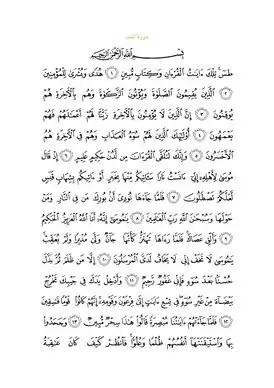 سورة النمل
بِسْمِ ٱللَّهِ ٱلرَّحْمَٰنِ ٱلرَّحِيمِ
طسٓ تِلْكَ ءَايَٰتُ ٱلْقُرْءَانِ وَكِتَابٍ مُّبِينٍ ١ هُدًى وَبُشْرَىٰ لِلْمُؤْمِنِينَ
٢ ٱلَّذِينَ يُقِيمُونَ ٱلصَّلَوٰةَ وَيُؤْتُونَ ٱلزَّكَوٰةَ وَهُم بِٱلْءَاخِرَةِ هُمْ
يُوقِنُونَ ٣ إِنَّ ٱلَّذِينَ لَا يُؤْمِنُونَ بِٱلْءَاخِرَةِ زَيَّنَّا لَهُمْ أَعْمَٰلَهُمْ فَهُمْ
يَعْمَهُونَ ٤ أُو۟لَٰٓئِكَ ٱلَّذِينَ لَهُمْ سُوٓءُ ٱلْعَذَابِ وَهُمْ فِى ٱلْءَاخِرَةِ هُمُ
ٱلْأَخْسَرُونَ ٥ وَإِنَّكَ لَتُلَقَّى ٱلْقُرْءَانَ مِن لَّدُنْ حَكِيمٍ عَلِيمٍ ٦ إِذْ قَالَ
مُوسَىٰ لِأَهْلِهِۦٓ إِنِّىٓ ءَانَسْتُ نَارًا سَـَٔاتِيكُم مِّنْهَا بِخَبَرٍ أَوْ ءَاتِيكُم بِشِهَابٍ قَبَسٍ
لَّعَلَّكُمْ تَصْطَلُونَ ٧ فَلَمَّا جَآءَهَا نُودِىَ أَنۢ بُورِكَ مَن فِى ٱلنَّارِ وَمَنْ
حَوْلَهَا وَسُبْحَٰنَ ٱللَّهِ رَبِّ ٱلْعَٰلَمِينَ ٨ يَٰمُوسَىٰٓ إِنَّهُۥٓ أَنَا ٱللَّهُ ٱلْعَزِيزُ ٱلْحَكِيمُ
٩ وَأَلْقِ عَصَاكَ فَلَمَّا رَءَاهَا تَهْتَزُّ كَأَنَّهَا جَآنٌّ وَلَّىٰ مُدْبِرًا وَلَمْ يُعَقِّبْ
يَٰمُوسَىٰ لَا تَخَفْ إِنِّى لَا يَخَافُ لَدَىَّ ٱلْمُرْسَلُونَ ١٠ إِلَّا مَن ظَلَمَ ثُمَّ بَدَّلَ
حُسْنًۢا بَعْدَ سُوٓءٍ فَإِنِّى غَفُورٌ رَّحِيمٌ ١١ وَأَدْخِلْ يَدَكَ فِى جَيْبِكَ تَخْرُجْ
بَيْضَآءَ مِنْ غَيْرِ سُوٓءٍ فِى تِسْعِ ءَايَٰتٍ إِلَىٰ فِرْعَوْنَ وَقَوْمِهِۦٓ إِنَّهُمْ كَانُوا۟ قَوْمًا فَٰسِقِينَ
١٢ فَلَمَّا جَآءَتْهُمْ ءَايَٰتُنَا مُبْصِرَةً قَالُوا۟ هَٰذَا سِحْرٌ مُّبِينٌ ١٣ وَجَحَدُوا۟
بِهَا وَٱسْتَيْقَنَتْهَآ أَنفُسُهُمْ ظُلْمًا وَعُلُوًّا فَٱنظُرْ كَيْفَ كَانَ عَٰقِبَةُ